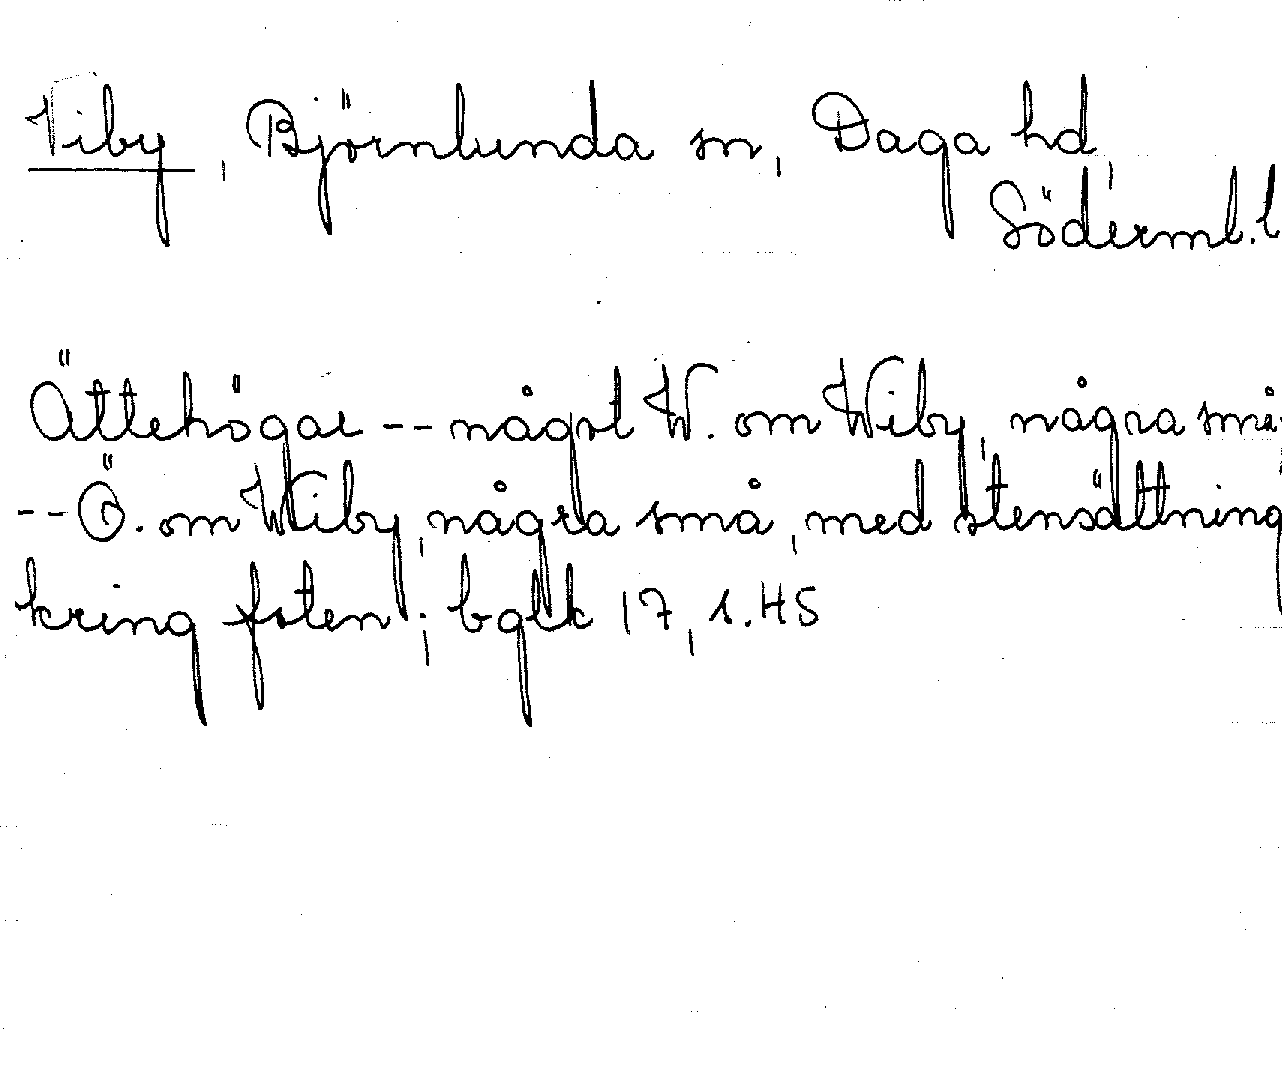 Viby, Björnlunda sn, Daga hd,
Söderml. l
Ättehögar -- något W. om Wiby, några små
-- Ö. om Wiby, några små, med stensättning
kring foten; bglk 17, s. 45